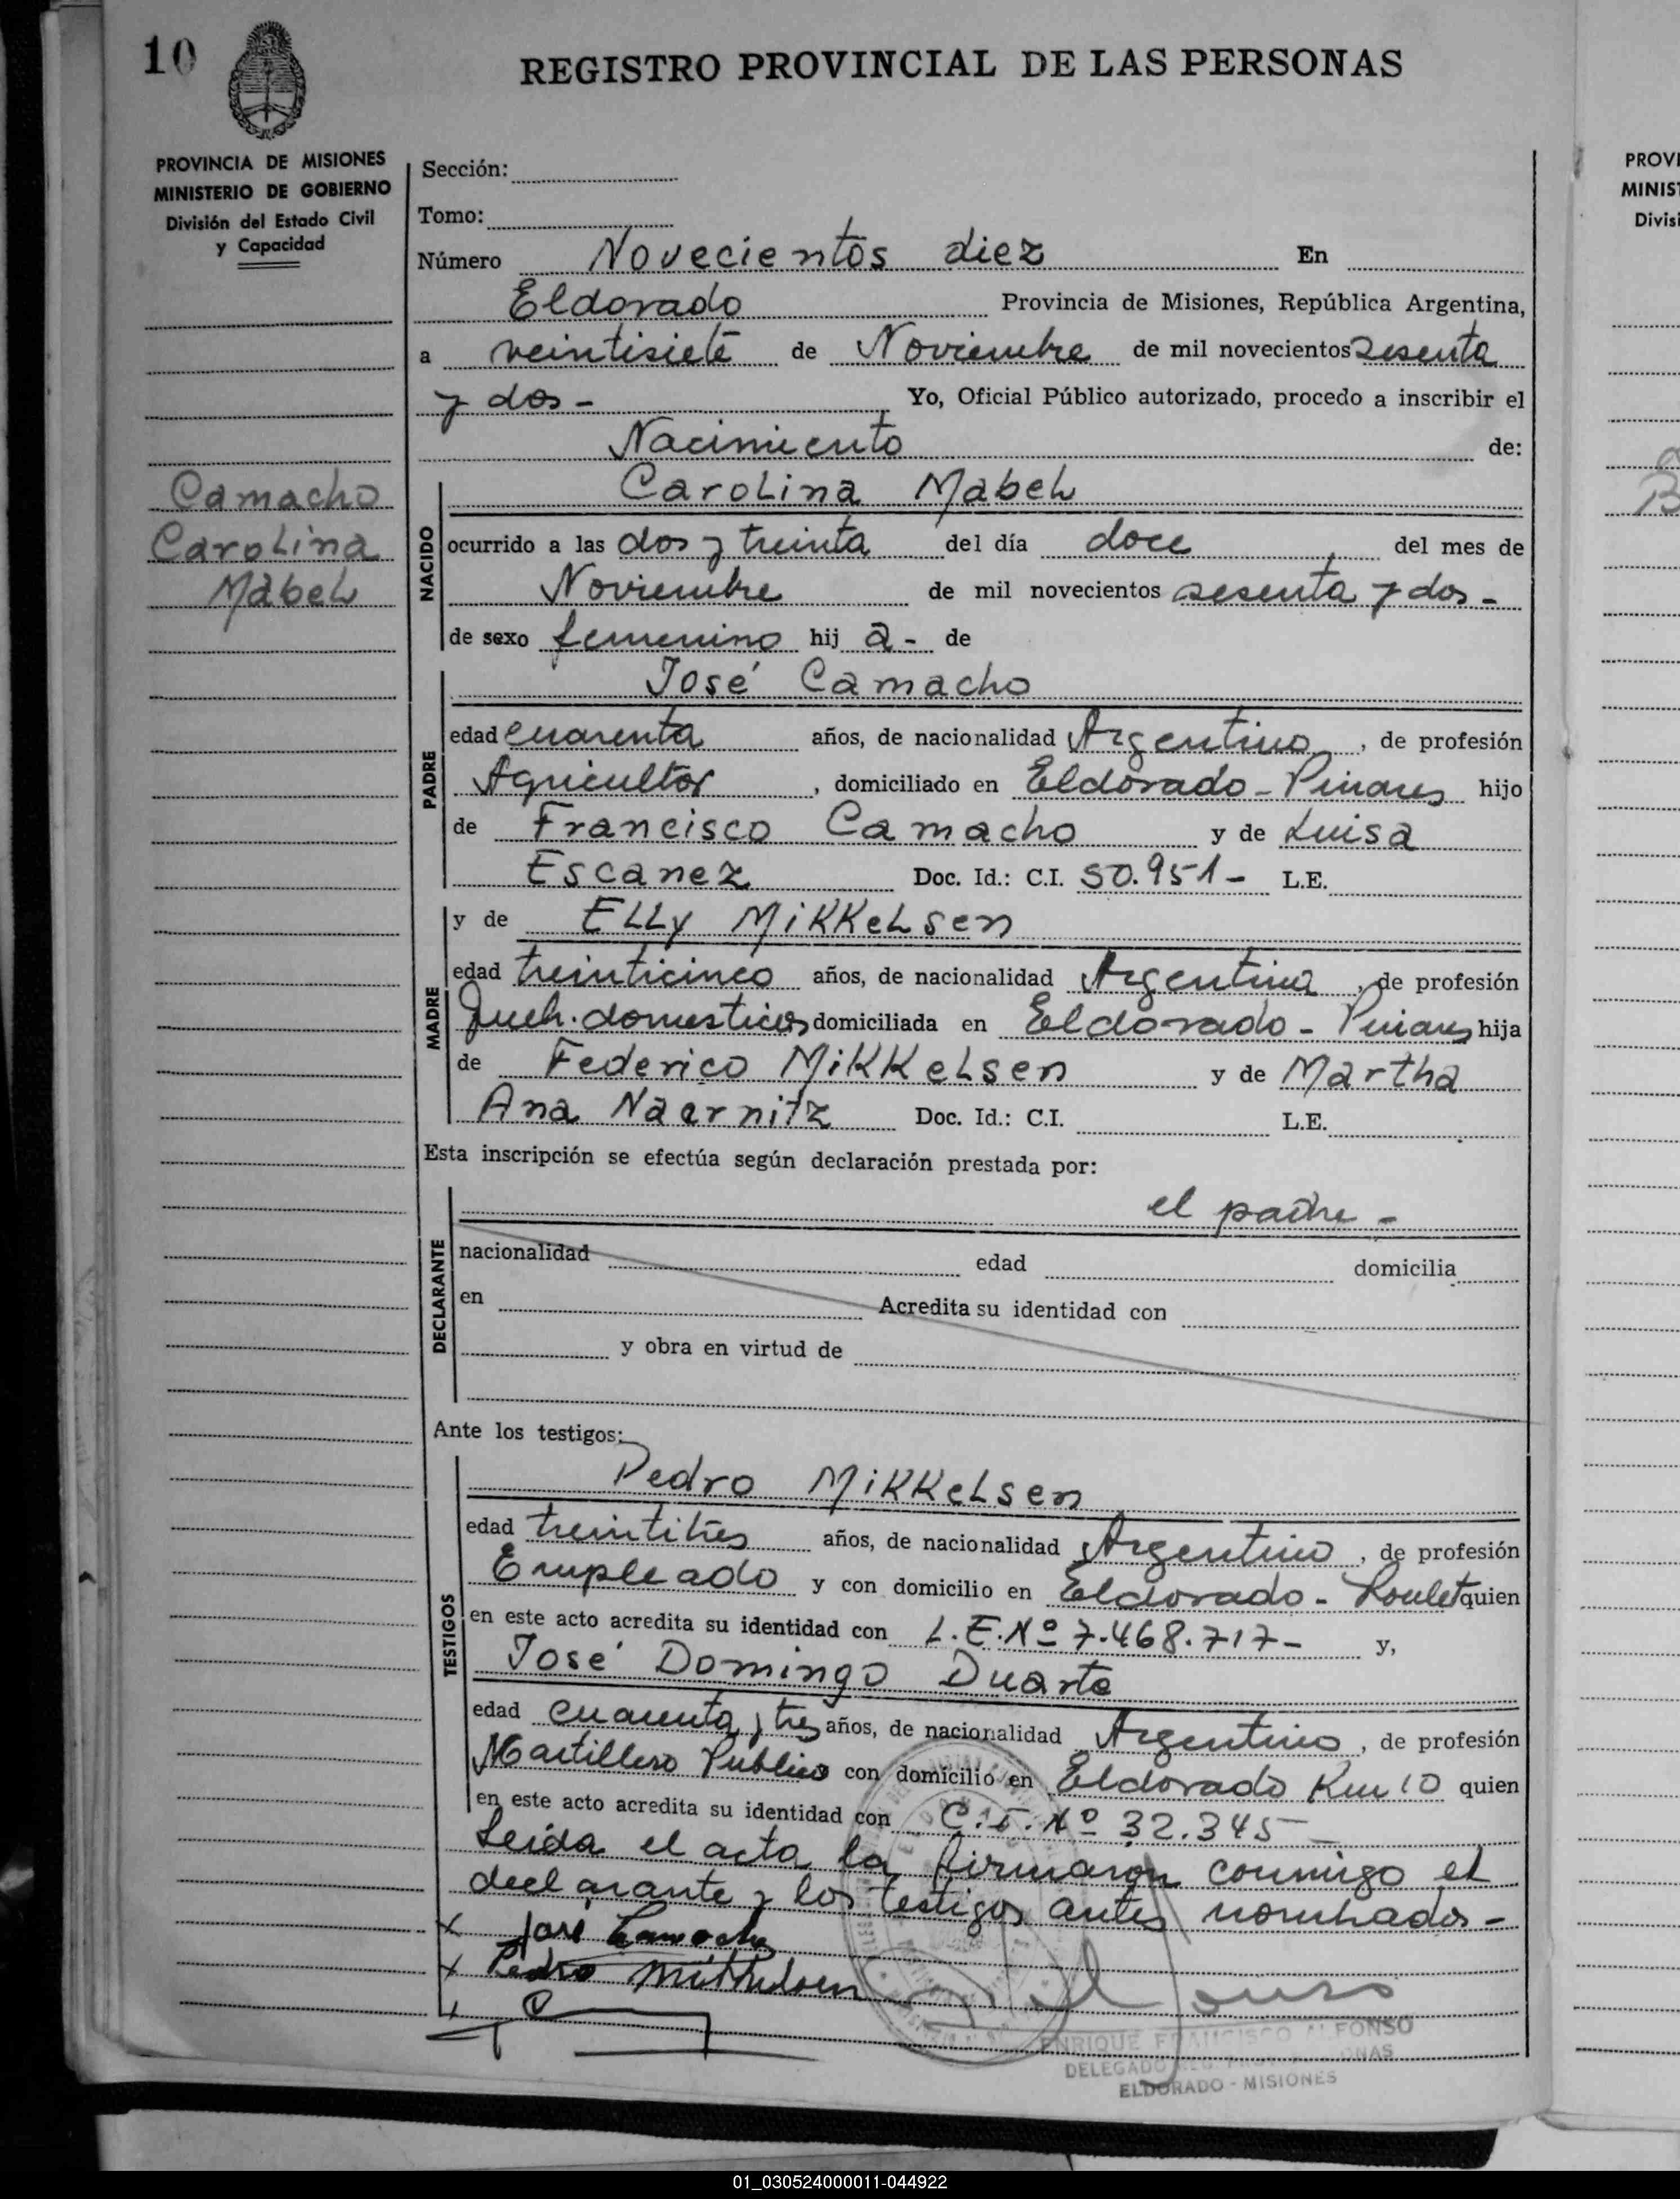 10
REGISTRO PROVINCIAL DE LAS PERSONAS
PROVINCIA DE MISIONES
MINISTERIO DE GOBIERNO
División del Estado Civil
y Capacidad
Camacho
Carolina
Mabel
Sección:
Tomo:
Número Novecientos diez En
Eldorado Provincia de Misiones, República Argentina,
a veintisiete de Noviembre de mil novecientos sesenta
y dos - Yo, Oficial Público autorizado, procedo a inscribir el
Nacimiento de:
NACIDO
Carolina Mabel
ocurrido a las dos y treinta del día doce del mes de
Noviembre de mil novecientos sesenta y dos -
de sexo femenino hij a - de
PADRE
José Camacho
edad cuarenta años, de nacionalidad Argentino, de profesión
Agricultor, domiciliado en Eldorado - Pinares hijo
de Francisco Camacho y de Luisa
Escanez Doc. Id.: C.I. 50.951 - L.E.
MADRE
y de Elly Mikkelsen
edad treinticinco años, de nacionalidad Argentina, de profesión
Queh. domesticos domiciliada en Eldorado - Pinares hija
de Federico Mikkelsen y de Martha
Ana Naernitz Doc. Id.: C.I. L.E.
Esta inscripción se efectúa según declaración prestada por:
DECLARANTE
el padre -
nacionalidad edad domicilia
en Acredita su identidad con
y obra en virtud de
Ante los testigos:
TESTIGOS
Pedro Mikkelsen
edad treintitres años, de nacionalidad Argentino, de profesión
Empleado y con domicilio en Eldorado - quien
en este acto acredita su identidad con L.E. Nº 7.468.717 - y,
José Domingo Duarte
edad cuarenta y tres años, de nacionalidad Argentino, de profesión
Martillero Publico con domicilio en Eldorado Km 10 quien
en este acto acredita su identidad con C.I. Nº 32.345 -
Leida el acta la firmaron conmigo el
declarante y los testigos antes nombrados -
x José Camacho
x Pedro Mikkelsen
ENRIQUE FRANCISCO ALFONSO
DELEGADO
ELDORADO - MISIONES
PROVI
MINIST
Divisi
01_030524000011-044922